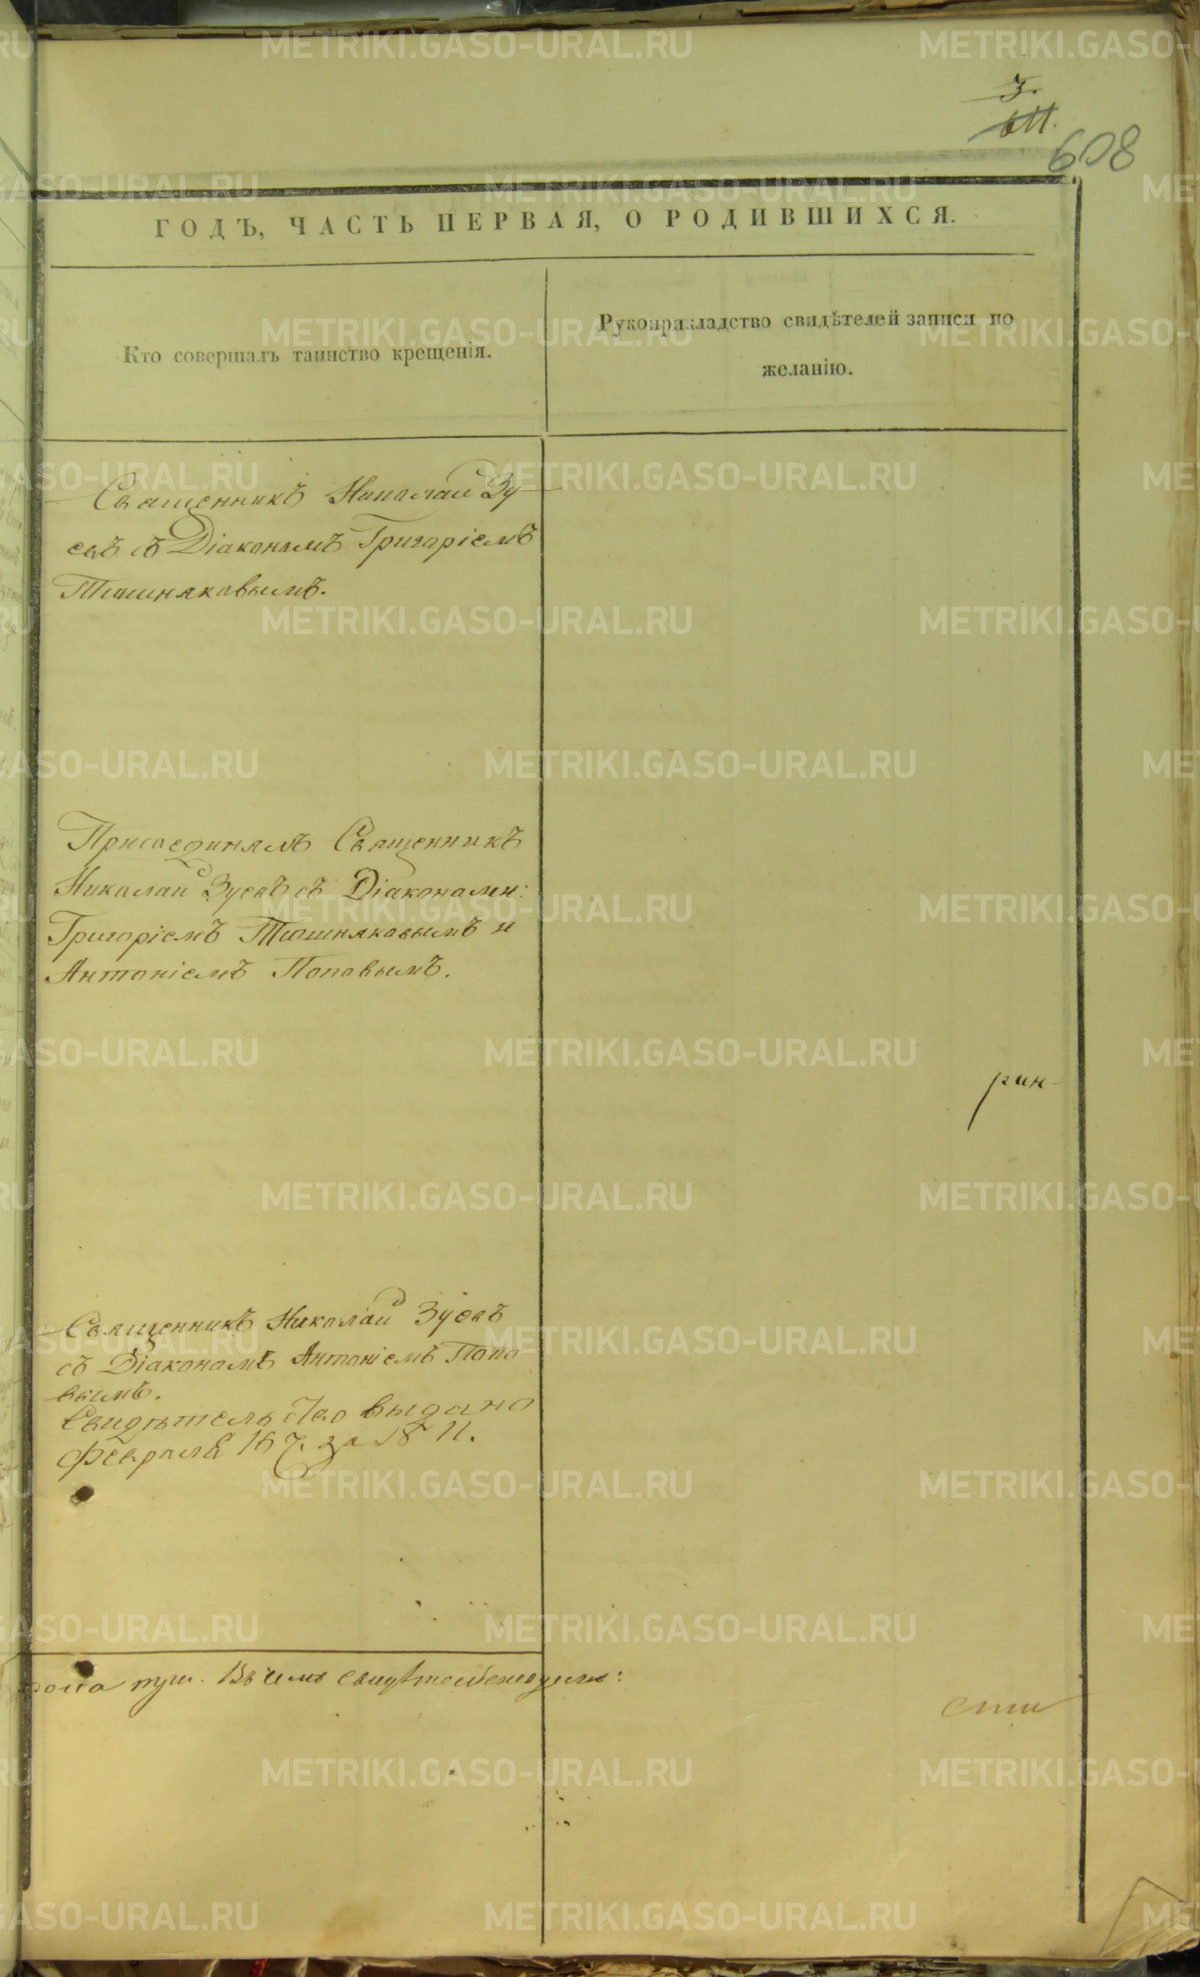 3.
611.
608
ГОДЪ, ЧАСТЬ ПЕРВАЯ, О РОДИВШИХСЯ.
Кто совершалъ таинство крещенія.
Рукоприкладство свидѣтелей записи по
желанію.
Священникъ Николай Зу
евъ съ Діакономъ Григоріемъ
Тюшняковымъ.
Присоединялъ Священникъ
Николай Зуевъ съ Діаконами:
Григоріемъ Тюшняковымъ и
Антоніемъ Поповымъ.
рин-
Священникъ Николай Зуевъ
съ Діакономъ Антоніемъ Попо
вымъ.
Свидѣтельство выдано
Февраля 16 за № 11.
три. Въ чемъ свидѣтельствуемъ:
METRIKI.GASO-URAL.RU